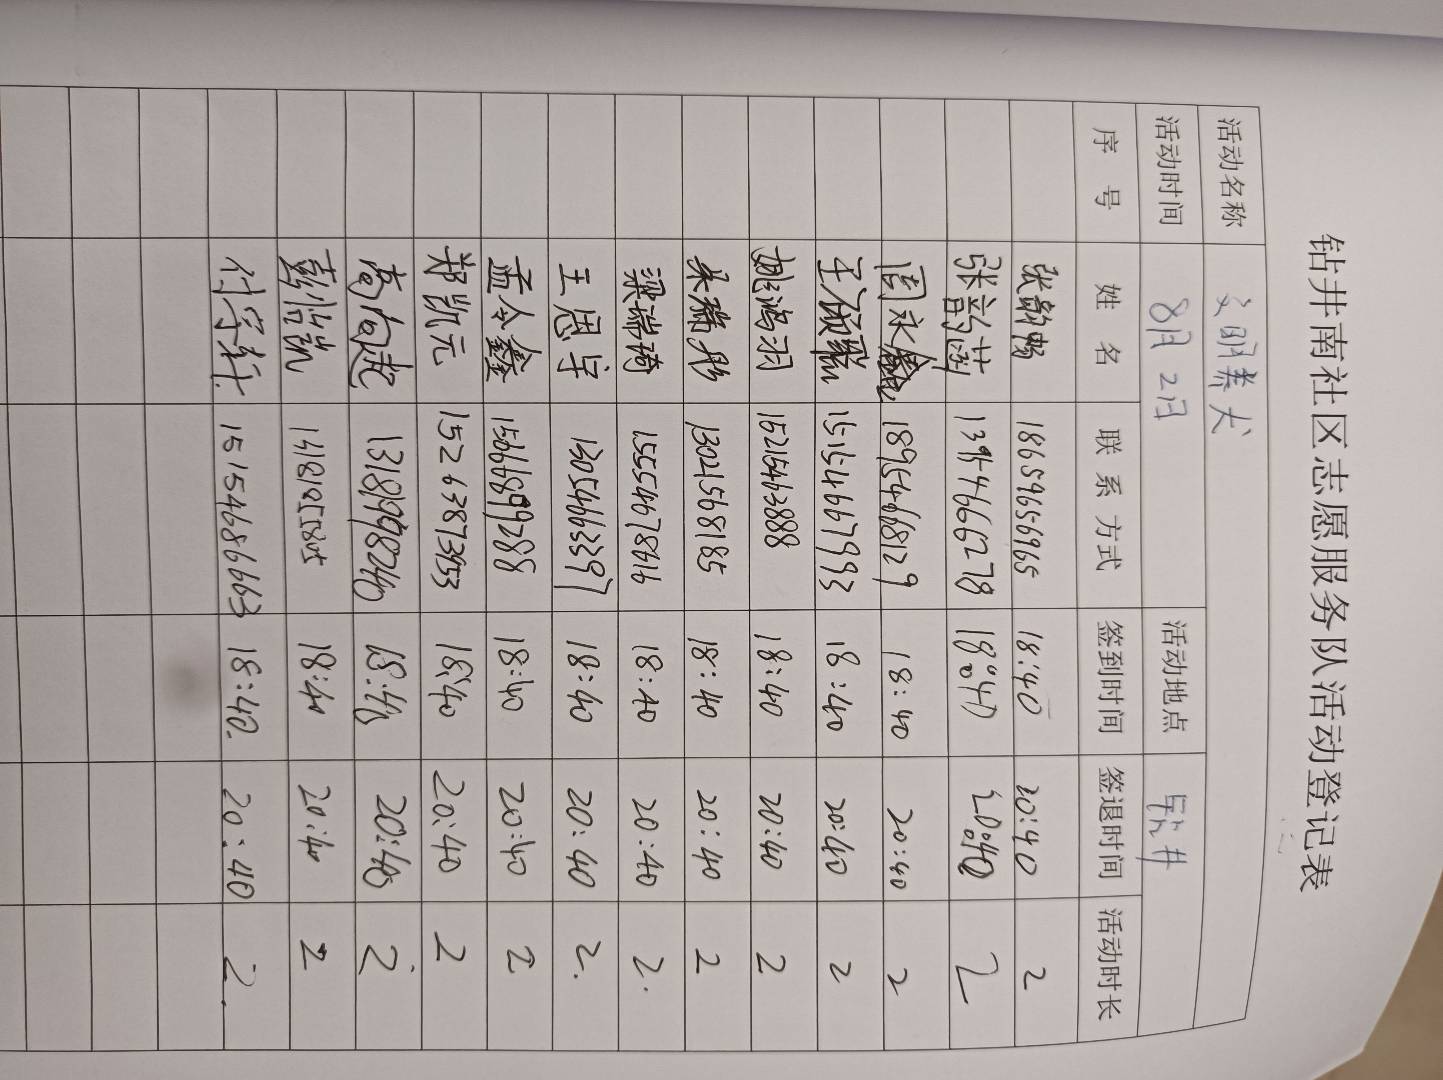 钻井南社区志愿服务队活动登记表
活动名称 文明养犬
活动时间 8月2日 活动地点 钻井
序号 姓名 联系方式 签到时间 签退时间 活动时长
张韵畅 18659656965 18:40 20:40 2
张 13954666278 18:40 20:40 2
周永鑫 18954668129 18:40 20:40 2
15154667993 18:40 20:40 2
姚鸿羽 15215463888 18:40 20:40 2
13021568185 18:40 20:40 2
梁瑞琦 15554678616 18:40 20:40 2.
王思宇 13054663397 18:40 20:40 2.
孟令鑫 15666899288 18:40 20:40 2
郑凯元 15263873953 18:40 20:40 2
高向起 13181998240 18:40 20:40 2
彭浩凯 18:40 20:40 2
付学美 15154686663 18:40. 20:40 2.